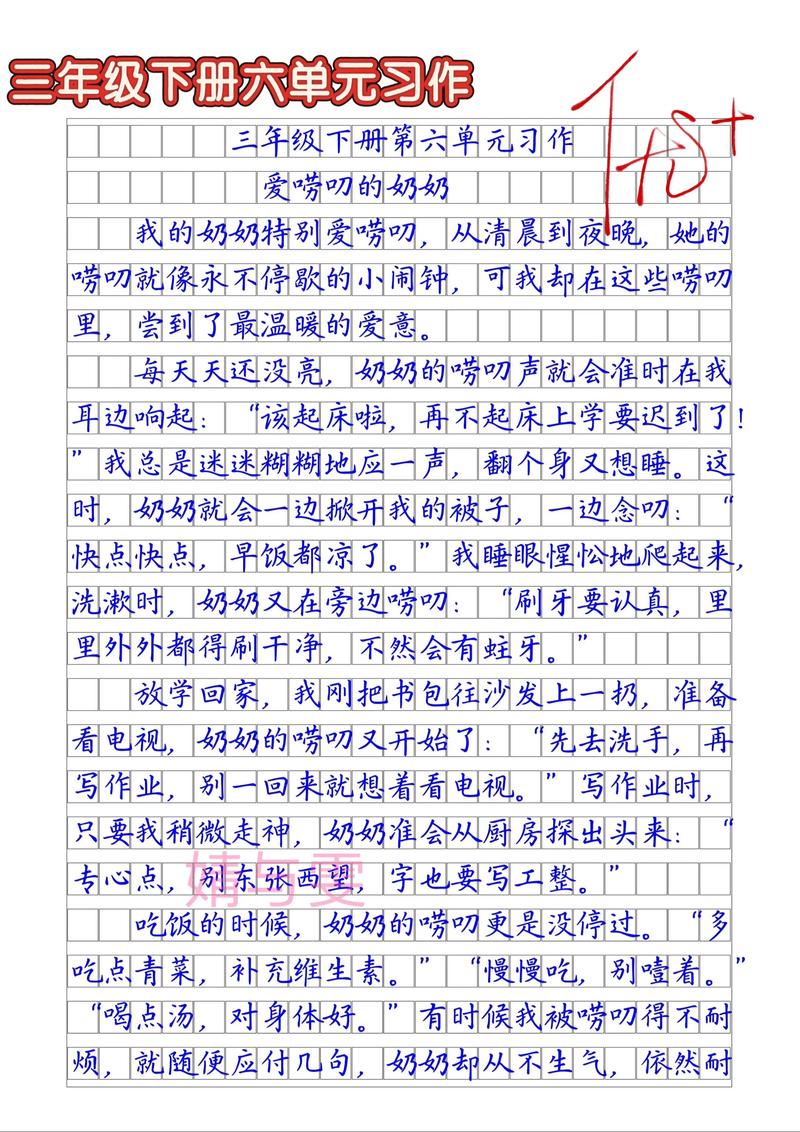 三年级下册六单元习作
优+
三年级下册第六单元习作
爱唠叨的奶奶
我的奶奶特别爱唠叨，从清晨到夜晚，她的
唠叨就像永不停歇的小闹钟，可我却在这些唠叨
里，尝到了最温暖的爱意。
每天天还没亮，奶奶的唠叨声就会准时在我
耳边响起：“该起床啦，再不起床上学要迟到了！
”我总是迷迷糊糊地应一声，翻个身又想睡。这
时，奶奶就会一边掀开我的被子，一边念叨：“
快点快点，早饭都凉了。”我睡眼惺忪地爬起来，
洗漱时，奶奶又在旁边唠叨：“刷牙要认真，里
里外外都得刷干净，不然会有蛀牙。”
放学回家，我刚把书包往沙发上一扔，准备
看电视，奶奶的唠叨又开始了：“先去洗手，再
写作业，别一回来就想着看电视。”写作业时，
只要我稍微走神，奶奶准会从厨房探出头来：“
专心点，别东张西望，字也要写工整。”
婧与雯
吃饭的时候，奶奶的唠叨更是没停过。“多
吃点青菜，补充维生素。”“慢慢吃，别噎着。”
“喝点汤，对身体好。”有时候我被唠叨得不耐
烦，就随便应付几句，奶奶却从不生气，依然耐